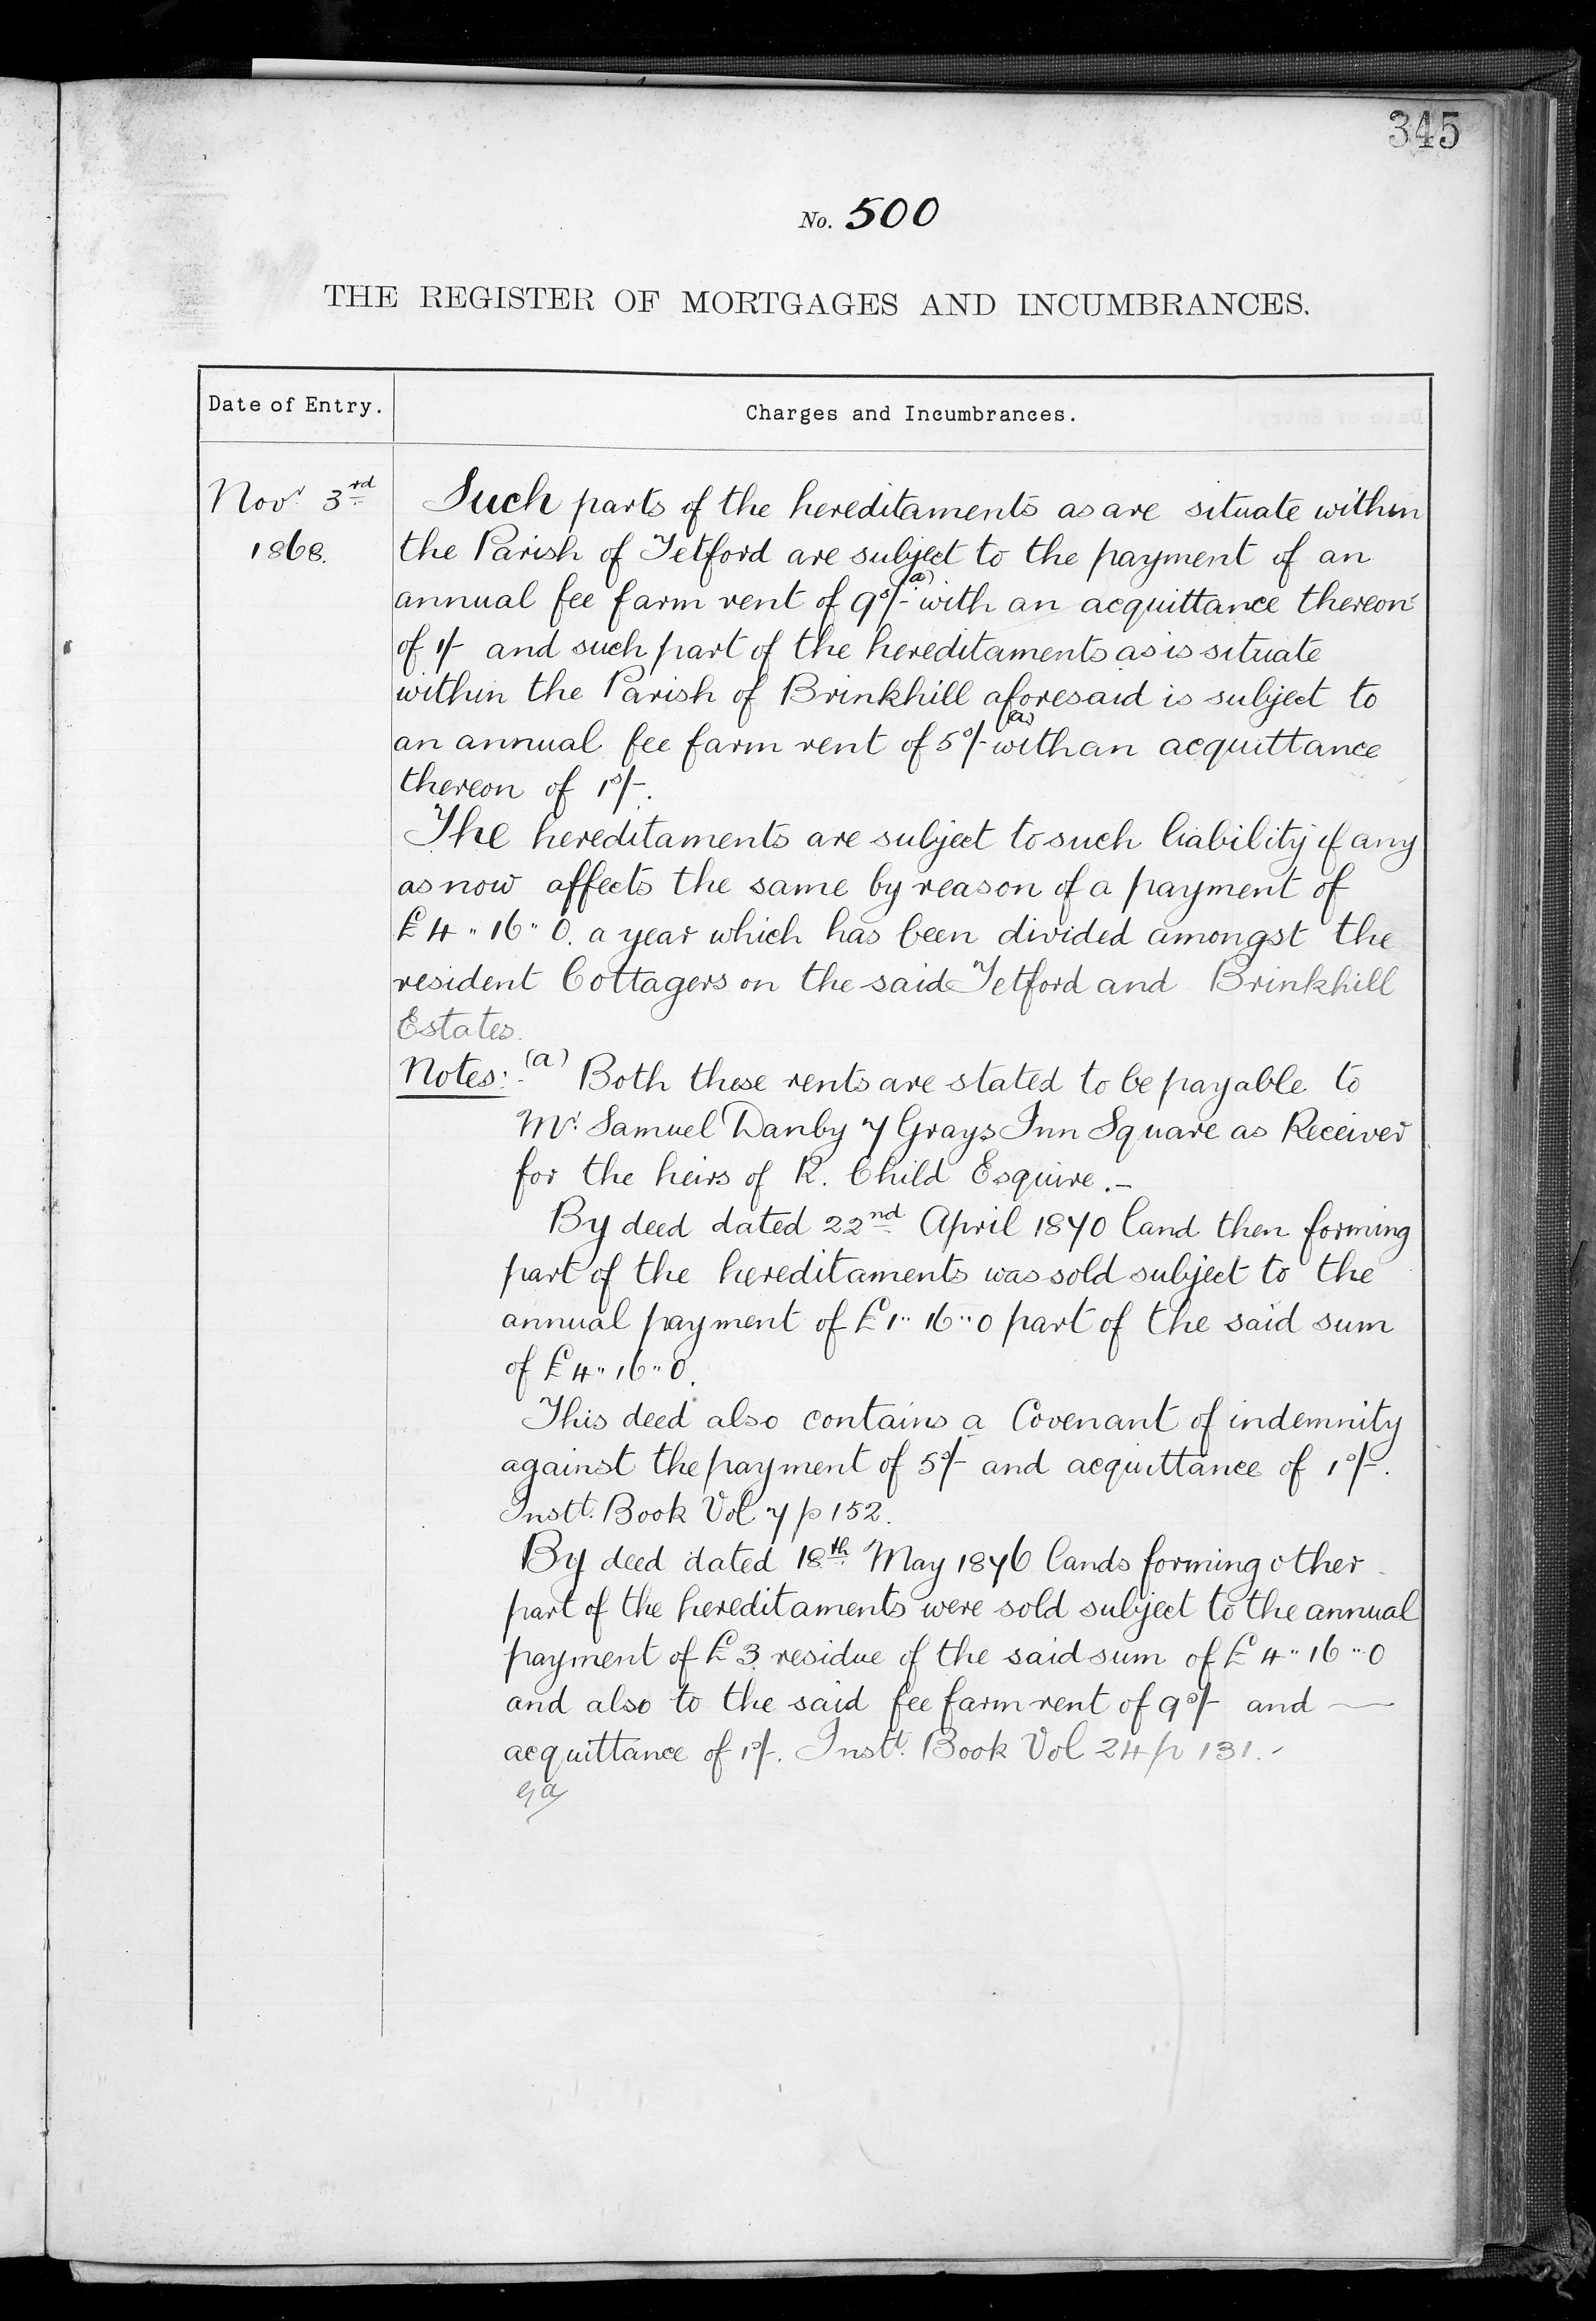 345
No. 500
THE REGISTER OF MORTGAGES AND INCUMBRANCES.
Date of Entry.
Charges and Incumbrances.
Novr 3rd
1868.
Such parts of the hereditaments as are situate within
the Parish of Tetford are subject to the payment of an
annual fee farm rent of 9s/-(a) with an acquittance thereon
of 1/- and such part of the hereditaments as is situate
within the Parish of Brinkhill aforesaid is subject to
an annual fee farm rent of 5s/-(a) with an acquittance
thereon of 1s/-.
The hereditaments are subject to such liability if any
as now affects the same by reason of a payment of
£4"16"0. a year which has been divided amongst the
resident Cottagers on the said Tetford and Brinkhill
Estates.
Notes:- (a) Both these rents are stated to be payable to
Mr. Samuel Danby 7 Grays Inn Square as Receiver
for the heirs of R. Child Esquire.-
By deed dated 22nd April 1870 land then forming
part of the hereditaments was sold subject to the
annual payment of £1"16"0 part of the said sum
of £4"16"0.
This deed also contains a Covenant of indemnity
against the payment of 5s/- and acquittance of 1s/-.
Instt. Book Vol 7 p 152.
By deed dated 18th May 1876 lands forming other
part of the hereditaments were sold subject to the annual
payment of £3 residue of the said sum of £4"16"0
and also to the said fee farm rent of 9s/- and —
acquittance of 1s/-. Instt. Book Vol 24 p 131.-